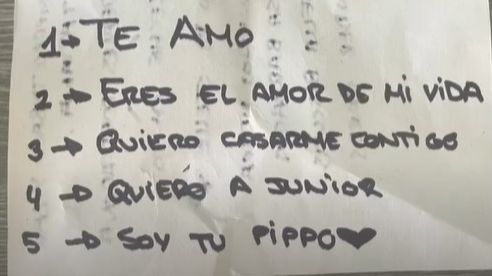 1→ TE AMO
2 → ERES EL AMOR DE MI VIDA
3 → QUIERO CASARME CONTIGO
4 → QUIERO A JUNIOR
5 → SOY TU PIPPO♥